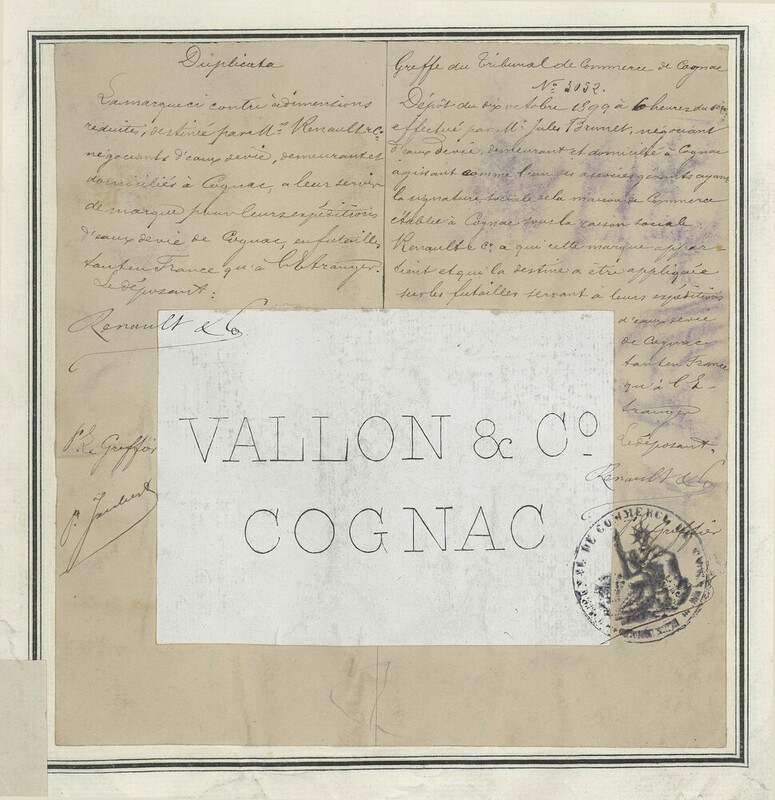 Duplicata
La marque ci contre à dimensions
réduites, destinée par Mrs Renault & Co
négociants d'eaux de vie, demeurant et
domiciliés à Cognac, a leur servir
de marque pour leurs expéditions
d'eaux de vie de Cognac, en futailles
tant en France qu'à l'Etranger.
Le déposant:
Renault & Co
Pr Le Greffier
P. Jaubert
Greffe du Tribunal de Commerce de Cognac
No 3052.
Dépôt du dix octobre 1899 à 6 heures du soir
effectué par Mr Jules Brunet, négociant
d'eaux de vie, demeurant et domicilié à Cognac
agissant comme l'un des associés gérants ayant
la signature sociale de la maison de Commerce
établie à Cognac sous la raison sociale:
Renault & Co a qui cette marque appar-
tient et qui la destine a être appliquée
sur les futailles servant à leurs expéditions
d'eaux de vie
de Cognac
tant en France
qu'à l'E-
tranger
Le déposant.
Renault & Co
Greffier
VALLON & Co
COGNAC
TRIBUNAL DE COMMERCE